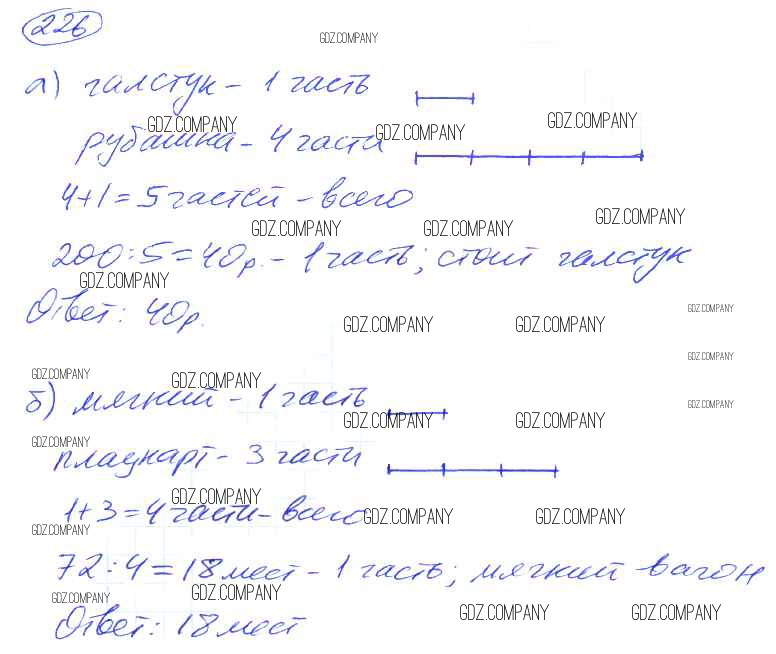 226
GDZ.COMPANY
а) галстук - 1 часть
GDZ.COMPANY GDZ.COMPANY GDZ.COMPANY
рубашка - 4 части
4+1=5 частей - всего
GDZ.COMPANY GDZ.COMPANY GDZ.COMPANY
200:5=40р. - 1 часть; стоит галстук
GDZ.COMPANY
Ответ: 40р.
GDZ.COMPANY GDZ.COMPANY GDZ.COMPANY
GDZ.COMPANY
GDZ.COMPANY GDZ.COMPANY
б) мягкий - 1 часть
GDZ.COMPANY GDZ.COMPANY GDZ.COMPANY
GDZ.COMPANY
плацкарт - 3 части
GDZ.COMPANY
1+3=4 части - всего
GDZ.COMPANY GDZ.COMPANY
GDZ.COMPANY
72:4=18 мест - 1 часть; мягкий вагон
GDZ.COMPANY GDZ.COMPANY
GDZ.COMPANY GDZ.COMPANY
Ответ: 18 мест